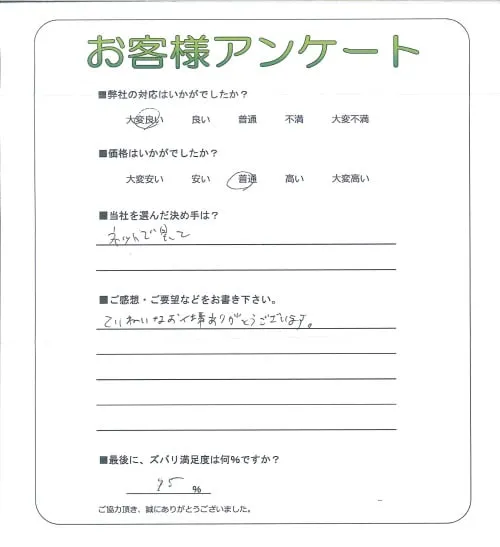 お客様アンケート
■弊社の対応はいかがでしたか？
大変良い 良い 普通 不満 大変不満
■価格はいかがでしたか？
大変安い 安い 普通 高い 大変高い
■当社を選んだ決め手は？
ネットで見て
■ご感想・ご要望などをお書き下さい。
ていねいなお仕事ありがとうございます。
■最後に、ズバリ満足度は何％ですか？
95 ％
ご協力頂き、誠にありがとうございました。